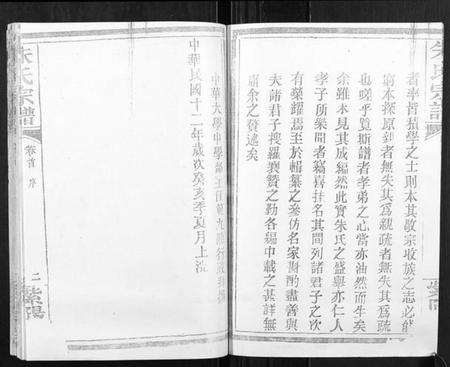 朱氏宗譜
者率皆積學之士則本其敬宗收族之志必能
窮本探原到者無失其為親疏者無失其為疏
也嗟乎覽斯譜者孝弟之心當亦油然而生矣
余雖未見其成編然此實朱氏之盛舉亦仁人
孝子所樂聞者竊喜挂名其間列諸君子之次
有榮耀焉至於輯纂之參仿名家斟酌盡善與
夫諸君子搜羅襄贊之勤各編中載之甚詳無
庸余之贅述矣
中華大學中學部
中華民國十二年歲次癸亥季夏月上浣
朱氏宗譜
卷首 序
二 紫陽